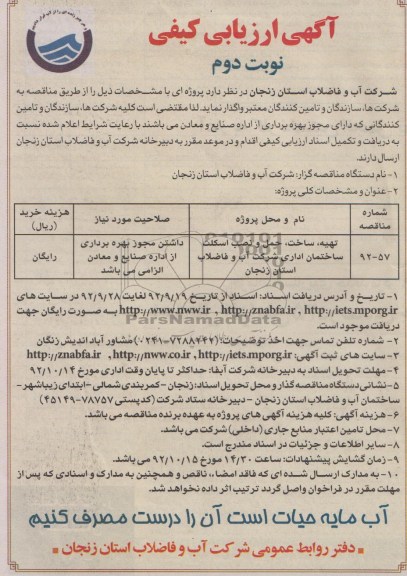 آگهی ارزیابی کیفی
نوبت دوم
شرکت آب و فاضلاب استان زنجان در نظر دارد پروژه ای با مشخصات ذیل را از طریق مناقصه به
شرکت ها، سازندگان و تامین کنندگان معتبر واگذار نماید. لذا مقتضی است کلیه شرکت ها، سازندگان و تامین
کنندگانی که دارای مجوز بهره برداری از اداره صنایع و معادن می باشند با رعایت شرایط اعلام شده نسبت
به دریافت و تکمیل اسناد ارزیابی کیفی اقدام و در موعد مقرر به دبیرخانه شرکت آب و فاضلاب استان زنجان
ارسال دارند.
۱- نام دستگاه مناقصه گزار: شرکت آب و فاضلاب استان زنجان
۲- عنوان و مشخصات کلی پروژه:
شماره مناقصه | نام و محل پروژه | صلاحیت مورد نیاز | هزینه خرید (ریال)
۹۲-۵۷ | تهیه، ساخت، حمل و نصب اسکلت ساختمان اداری شرکت آب و فاضلاب استان زنجان | داشتن مجوز بهره برداری از اداره صنایع و معادن الزامی می باشد | رایگان
۱- تاریخ و آدرس دریافت اسناد: اسناد از تاریخ ۹۲/۹/۱۹ لغایت ۹۲/۹/۲۸ در سایت های
http://iets.mporg.ir , http://znabfa.ir , http://www.nww.ir به صورت رایگان جهت
دریافت موجود است.
۲- شماره تلفن تماس جهت اخذ توضیحات: (۷۲۸۸۴۴۷-۰۲۴۱) مشاور آباد اندیش زنگان
۳- سایت های ثبت آگهی: http://iets.mporg.ir , http://nww.co.ir , http://znabfa.ir
۴- مهلت تحویل اسناد به دبیرخانه شرکت آبفا: حداکثر تا پایان وقت اداری مورخ ۹۲/۱۰/۱۴
۵- نشانی دستگاه مناقصه گذار و محل تحویل اسناد: زنجان - کمربندی شمالی - ابتدای زیباشهر -
ساختمان آب و فاضلاب استان زنجان - دبیرخانه ستاد شرکت (کدپستی ۷۸۷۵۷-۴۵۱۴۹)
۶- هزینه آگهی: کلیه هزینه آگهی های پروژه به عهده برنده مناقصه می باشد.
۷- محل تامین اعتبار منابع جاری (داخلی) شرکت می باشد.
۸- سایر اطلاعات و جزئیات در اسناد مندرج است.
۹- زمان گشایش پیشنهادات: ساعت ۱۴/۳۰ مورخ ۹۲/۱۰/۱۵ می باشد.
۱۰- به مدارک ارسال شده ای که فاقد امضاء، ناقص و همچنین به مدارک و اسنادی که پس از
مهلت مقرر در فراخوان واصل گردد ترتیب اثر داده نخواهد شد.
آب مایه حیات است آن را درست مصرف کنیم
دفتر روابط عمومی شرکت آب و فاضلاب استان زنجان
ParsNamadData